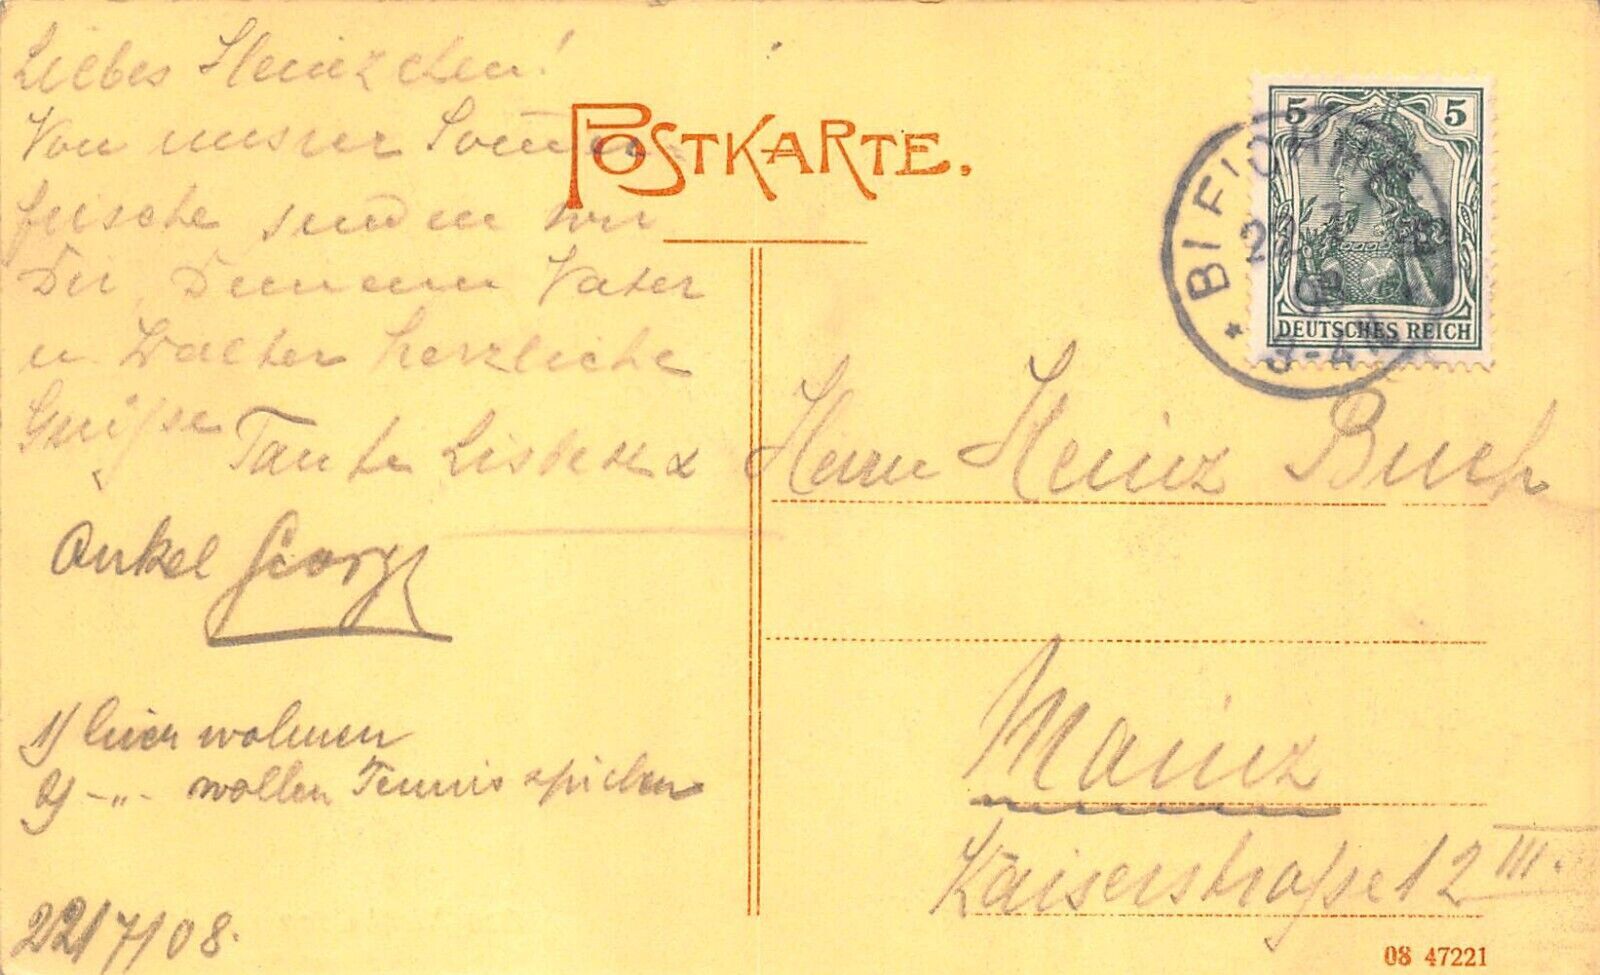 Liebes Heinzchen!
Von unsrer Sommer
frische senden wir
Dir, Deinem Vater
u. Walter herzliche
Grüße
Tante Lisbeth &
Onkel Georg
1) hier wohnen
2) -"- wollen Tennis spielen
22/7/08.
POSTKARTE.
5 5
DEUTSCHES REICH
3-4
Herrn Heinz Buch
Mainz
Kaiserstraße 12 III.
08 47221